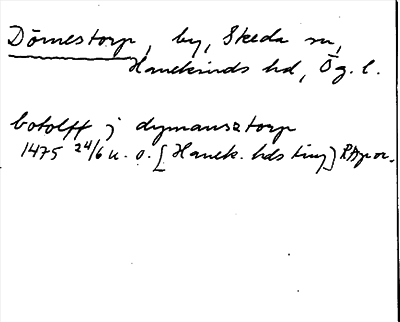 Dömestorp, by, Skeda sn,
Hanekinds hd, Ög. l.
botolff j dymansztorp
1475 24/6 u. o. [Hanek. hds ting] RApor.